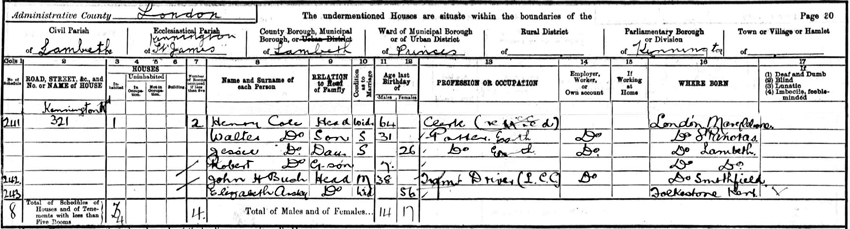 Administrative County London The undermentioned Houses are situate within the boundaries of the Page 20
Civil Parish of Lambeth
Ecclesiastical Parish of Kennington St James
County Borough, Municipal Borough, or Urban District of Lambeth
Ward of Municipal Borough or of Urban District of Princes
Rural District of
Parliamentary Borough or Division of Kennington
Town or Village or Hamlet of
Cols 1 2 3 4 5 6 7 8 9 10 11 12 13 14 15 16 17
No. of Schedule
ROAD, STREET, &c., and No. or NAME of HOUSE
HOUSES
Inhabited
Uninhabited
In Occupation
Not in Occupation
Building
Name and Surname of each Person
RELATION to Head of Family
Condition as to Marriage
Age last Birthday of
Males Females
PROFESSION OR OCCUPATION
Employer, Worker, or Own account
If Working at Home
WHERE BORN
(1) Deaf and Dumb
(2) Blind
(3) Lunatic
(4) Imbecile, feeble-minded
Kennington Rd
241 321 1 2 Henry Cole Head Wid. 64 Clerk London Marylebone
Walter Do Son S 31 Do Do
Jessie Do Dau. S 26 Do Do Do Lambeth
Robert Do G.son 7 Do Do
242 John H Bush Head M 38 Tram Driver (L.C.C) Do Do Smithfield
243 Elizabeth Do Wid 56 Folkestone Kent
8 Total of Schedules of Houses and of Tenements with less than Five Rooms 4 Total of Males and of Females... 14 17